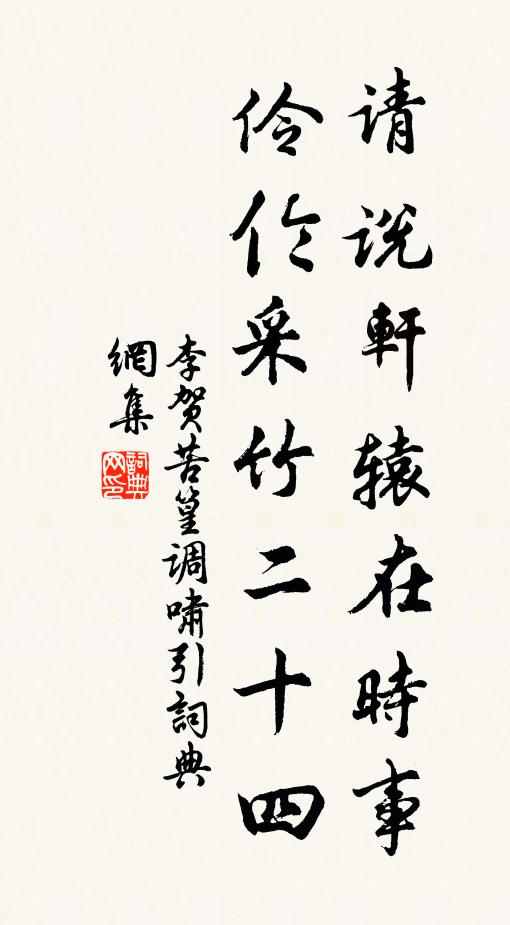 请说軒辕在時事
伶伦采竹二十四
李贺苦篁调嘯引詞典
網集
詞典
网印